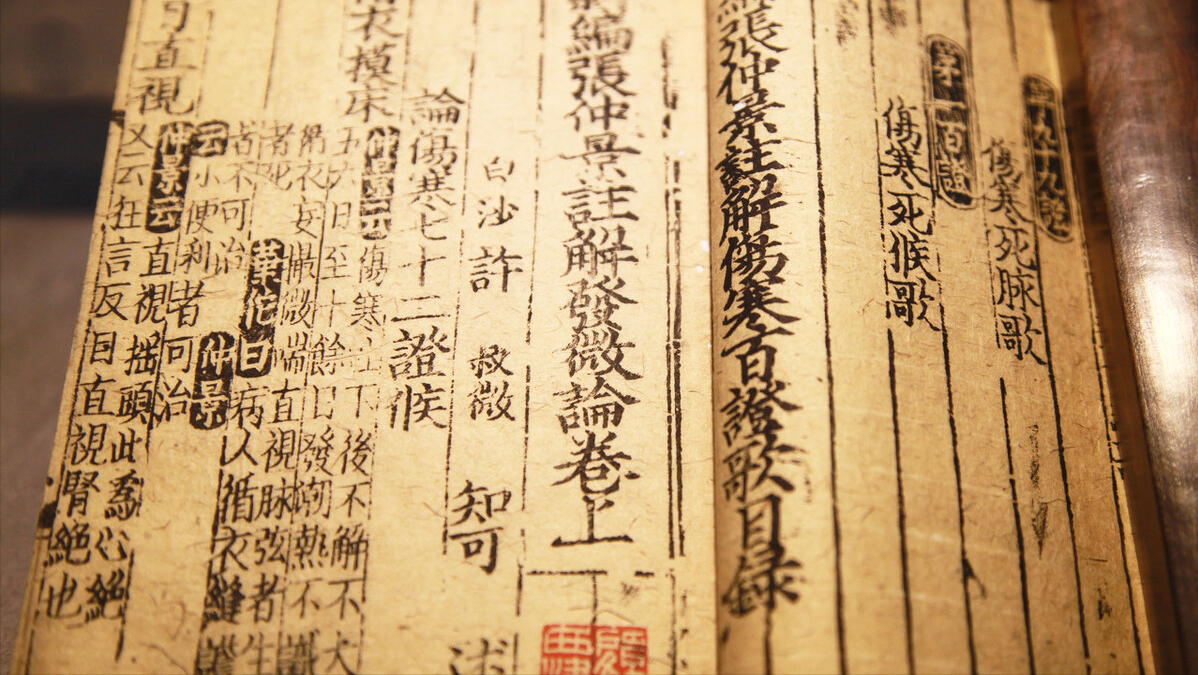 九十九證
傷寒死脉歌
第一百證
傷寒死候歌
張仲景註解傷寒百證歌目録
編張仲景註解發微論卷上
白沙許 叔微 知可 述
論傷寒七十二證候
衣摸床
仲景云傷寒吐下後不解不大
五六日至十餘日發潮熱不識
衣妄撮微喘直視脉弦者生
者死華佗曰病人循衣縫
者不可治仲景
云小便利者可治
直視
仲景云直視揺頭此為心絶
又云狂言反目直視腎絶也